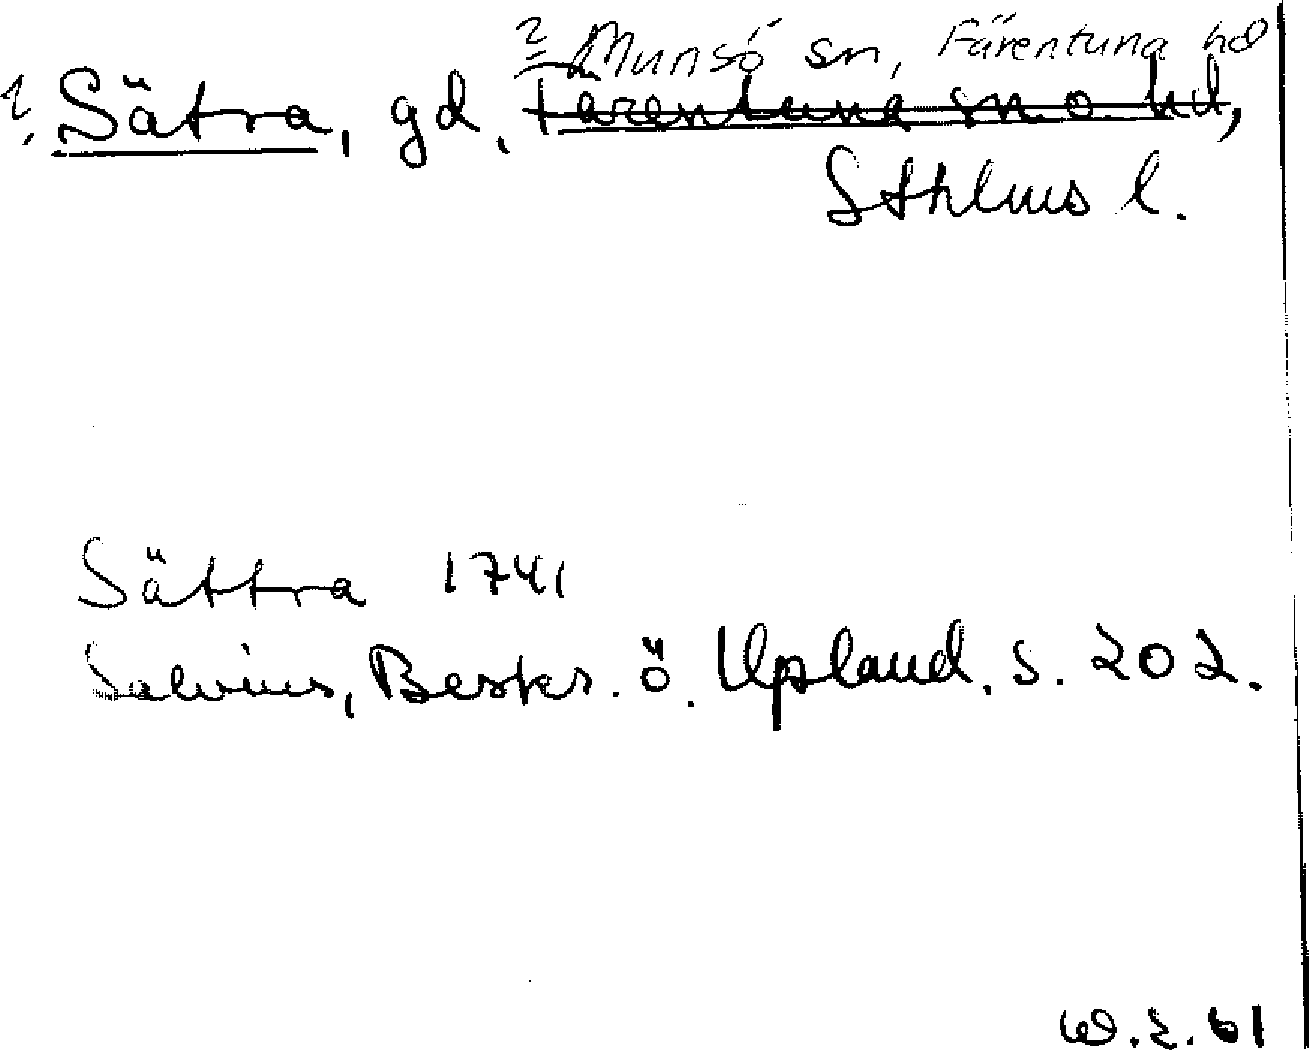 2, Munsö sn, Färentuna hd
1, Sätra, gd, Färentuna sn o. hd,
Sthlms l.
Sättra 1741
Salvius, Beskr. ö. Upland. s. 202.
W.Z. 61